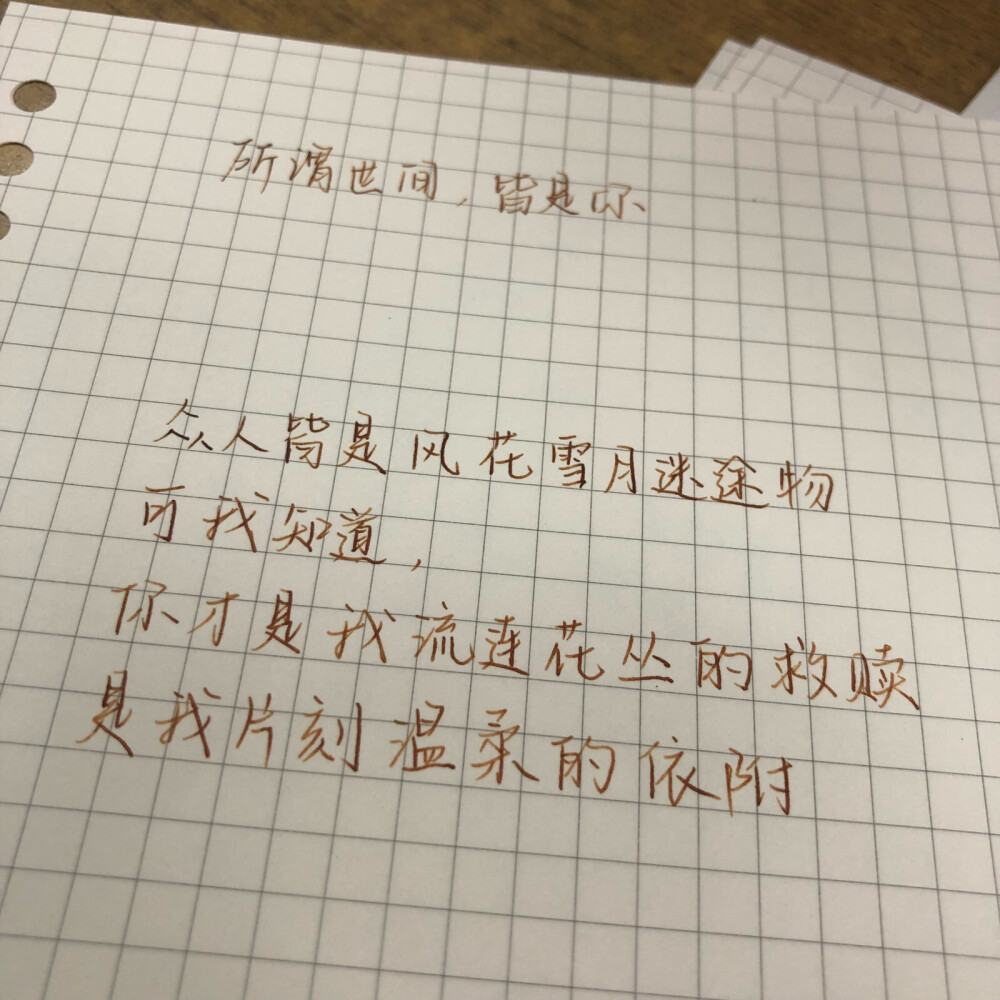 所谓世间，皆是你
众人皆是风花雪月迷途物
可我知道，
你才是我流连花丛的救赎
是我片刻温柔的依附